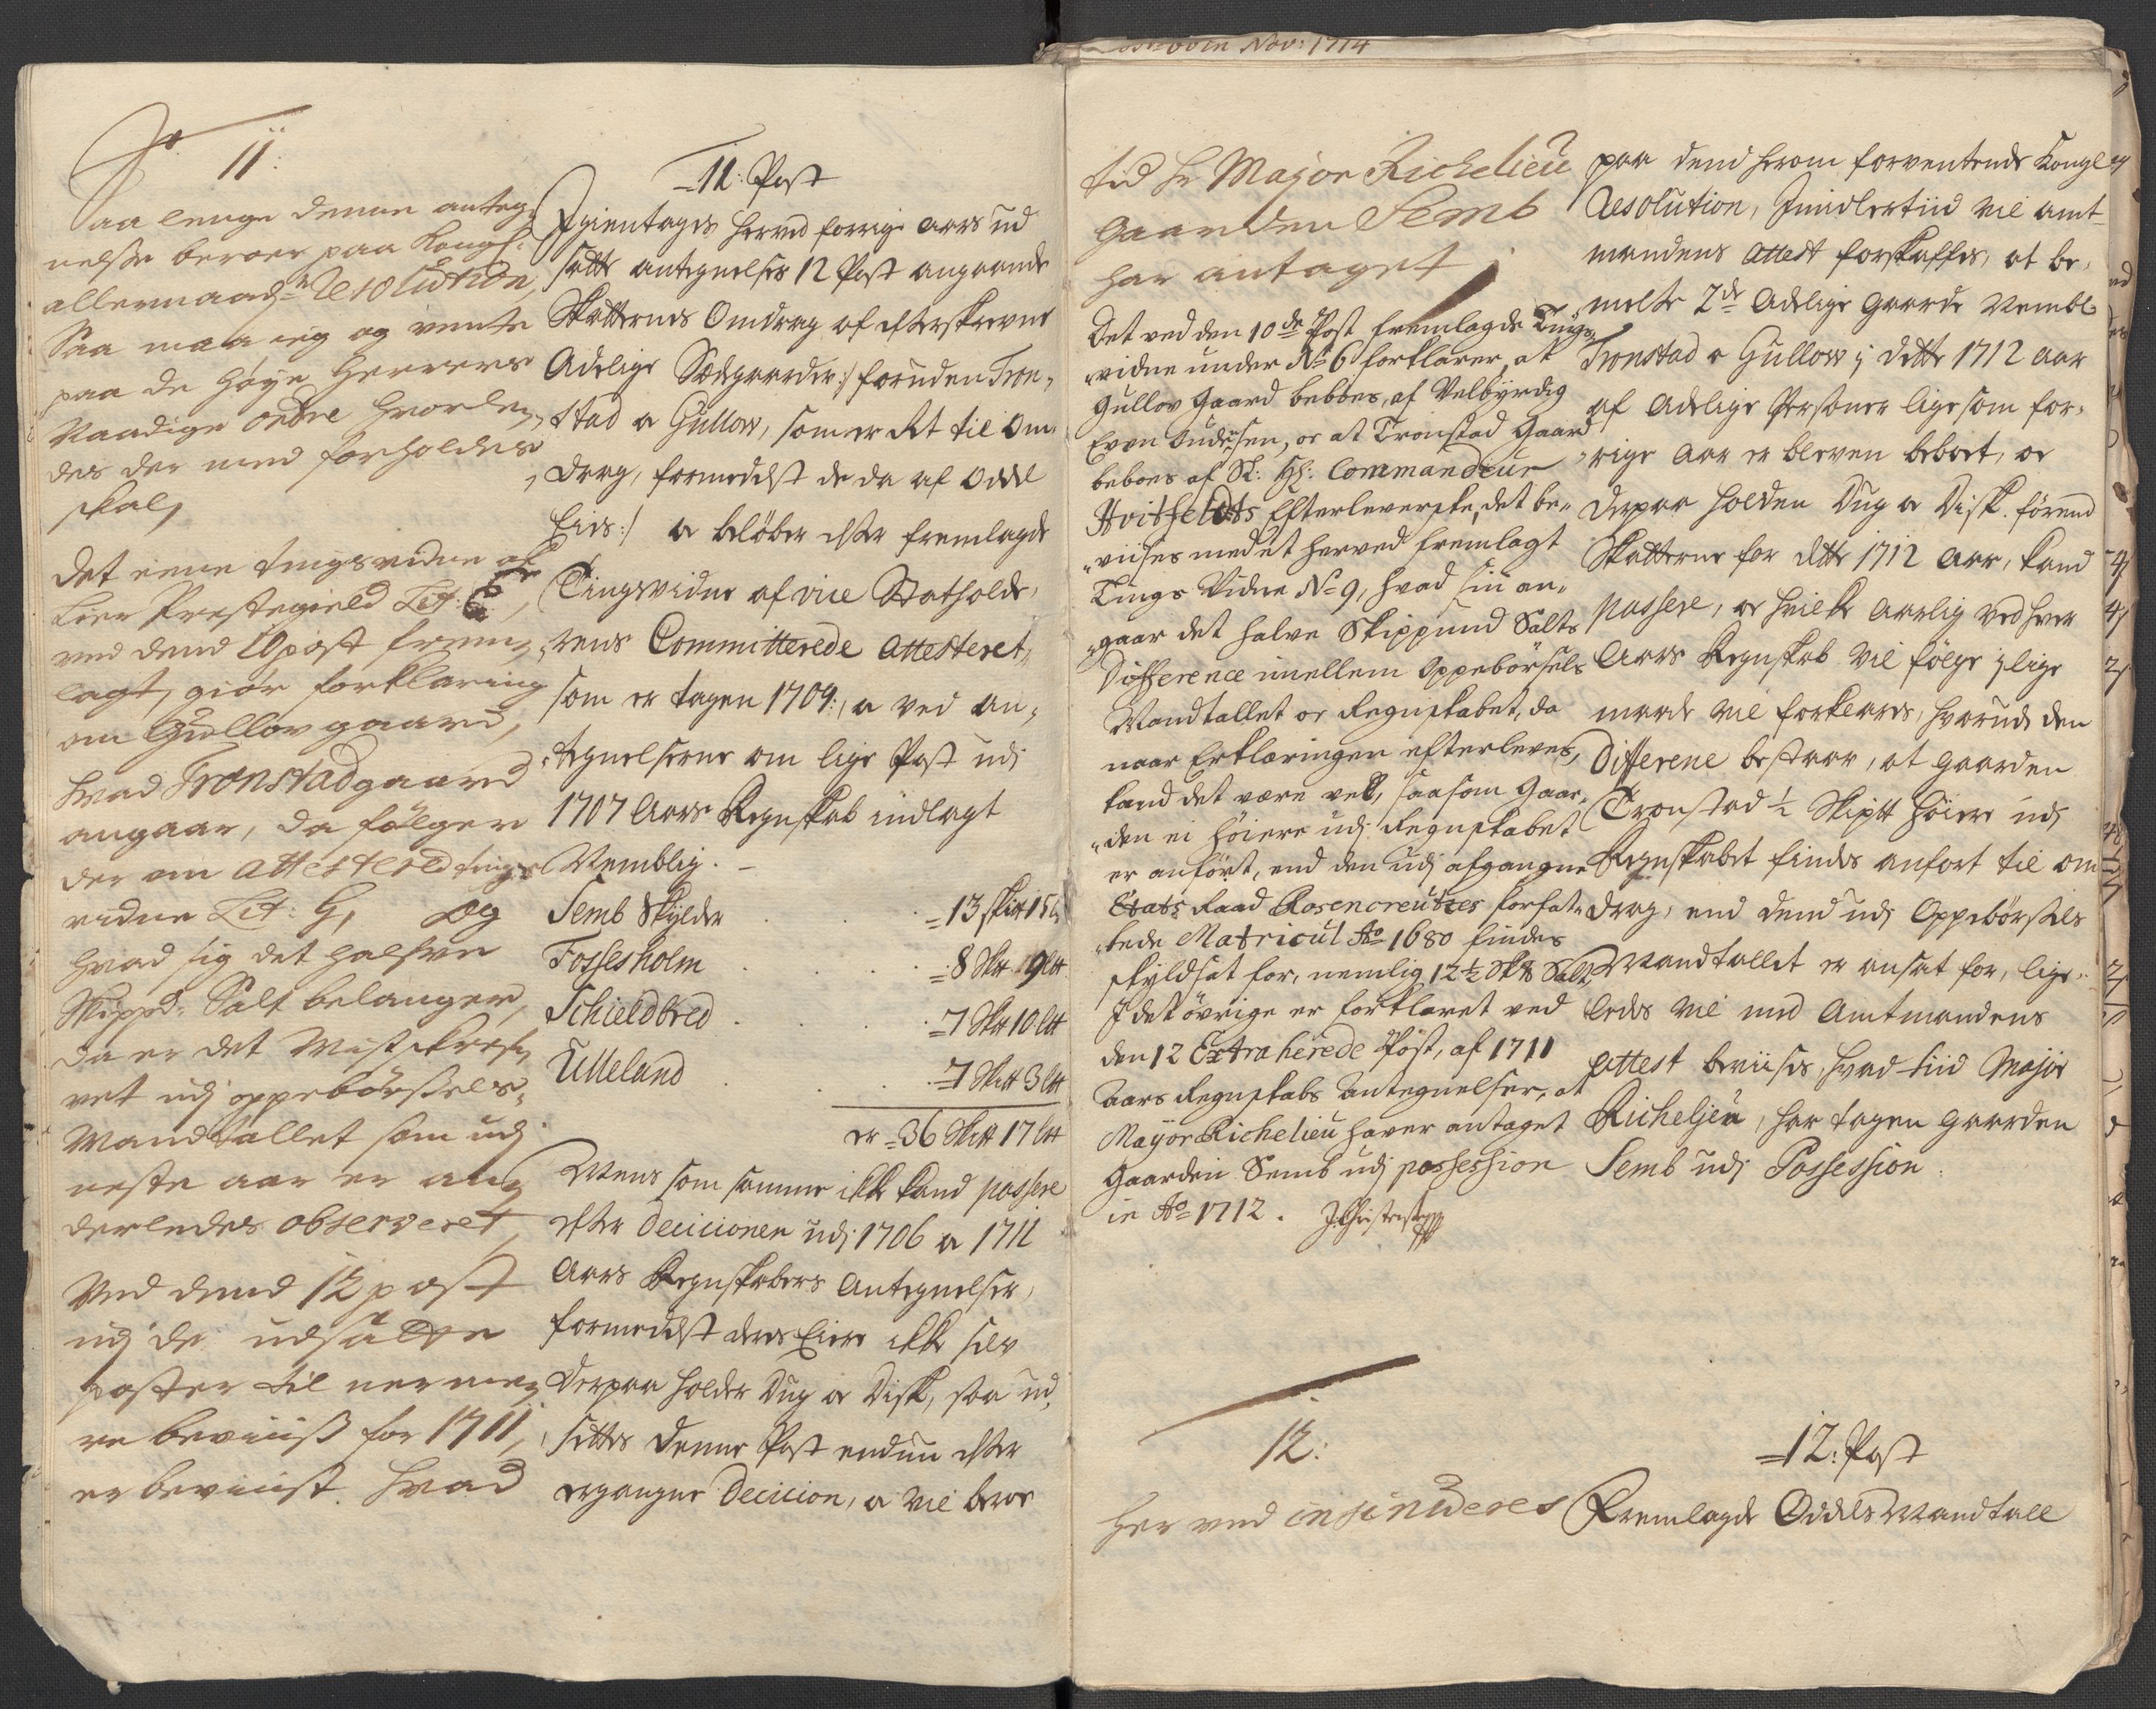 11:
Saa lenge denne anteg-
nelse beroer paa Kongl:
allernaad: Resolution,
Saa maa ieg og vente
paa de høye Herrers
Naadige ordre hvorle-
des der med forholdes
skal,
det eene tingsvidne af
Lier Prestegield Lit: E,
ved dend 10 post frem-
lagt, giør forklaring
om Gullov gaard,
hvad Tronstad gaard
angaar, da følger
der om attestered tings
vidne Lit: G, og
hvad sig det halfve
Skippd: Salt belanger,
da er det Mistskref-
vet udj oppebørsels-
Mandtallet som udj
neste aar er an-
derledes observeret,
Ved dend 12 post
udj de udsatte
poster til nerme-
re beviiß for 1711,
er beviist. hvad
11: Post
Igientages herved forrige aars ud
satte antegnelses 12 Post angaaende
Skatternes Omdrag af efterskrevne
Adelige Sædegaarder :/ foruden Tron-
stad a Gullow, som er Ret til Om-
drag, formedelst de da af Odel
Eies :/ a beløber efter fremlagde
Tingsvidne af vice Statholde-
rens Committerede Attesteret,
som er tagen 1709:, a ved An-
tegnelserne om lige Post udj
1707 Aars Regnskab indlagt
Nemblig.
Semb Skylder - 13 skp 15 L
Fossesholm - 8 Sktt 9 ltt
Schieldbred - 7 Sktt 10 ltt
Ulleland - 7 Sktt 3 ltt
er - 36 Sktt 17 ltt
Mens som samme ikke kand passere
efter Decicionen udj 1706 a 1711
Aars Regnskabers Antegnelser,
formedelst deres Eiere ikke selv
Derpaa holder Dug a Disk, saa ud-
settes denne Post endnu efter
ergangne Decicion, a vil beroe
tid hr Major Richelieu
gaarden Semb
har antaget
Det ved den 10de Post fremlagde Tings-
vidne under No 6 forklarer, at
Gullov Gaard beboes, af Velbyrdig
Even Budesen, oc at Tronstad Gaard
beboes af Sl: Hr: Commandeur
Hvitfeldts Efterleverske, det be-
viises med et herved fremlagt
Tings Vidne No 9, hvad sin an-
gaar det halve Skippund Salts
Difference imellem Oppebørsels
Mandtallet oc Regnskabet, da
naar Erklæringen efterleves,
kand det være vel, saasom Gaar-
den ei høiere udj Regnskabet
er anført, end den udj afgangne
Etats Raad Rosencreutzes forfat-
tede Matricul Ao 1680 findes
skyldsat for, nemlig 12½ Sk℔ Salt.
I det øvrige er forklaret ved
den 12 Extraherede Post, af 1711
Aars Regnskabs Antegnelser, at
Mayor Richelieu haver antaget
Gaarden Semb udj possession
in Ao 1712. J: Christensen
paa dend herom forventende Kongl
Resolution, Jmidlertiid vil amt-
mandens Attest forskaffes, at be-
melte 2de Adelige Gaarde Nembl
Tronstad a Gullow j dette 1712 aar
af Adelige Personer lige som for-
rige Aar er bleven beboet, oc
derpaa holden Dug a Disk. førend
Skatterne for dette 1712 Aar, kand
passere, oc hvilke Aarlig ved hver
Aars Regnskab vil følge j lige
maade vil forklares, hvorudj den
Differene bestaar, at gaarden
Tronstad ½ Skiptt høiere udj
Regnskabet findes anfort til om
drag, end dend udj Oppebørsels
Mandtallet er ansat for, lige-
ledes vil med Amtmandens
Attest beviises, hvad tiid Major
Richeljeu, har tagen gaarden
Semb udj Possession.
12:
Her ved insinueres
12: Post
Fremlagde Odels Mandtall